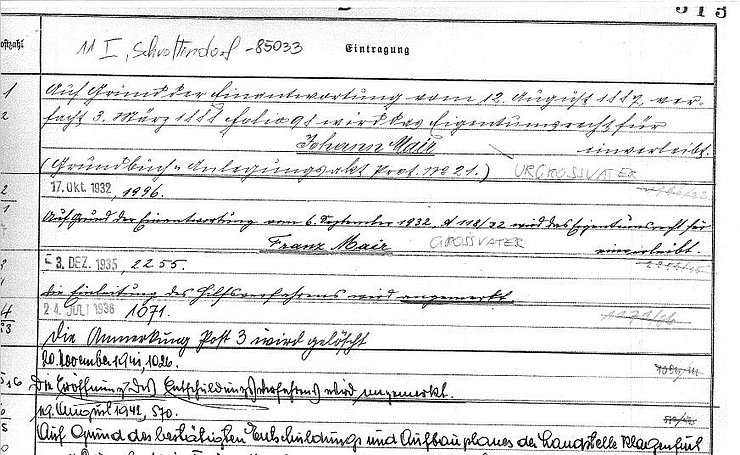 515
11 I, Schrottendorf - 85033
Eintragung
1 Auf Grund der Einantwortung vom 12. August 1887, ver-
2 facht 3. März 1888 folio 91 wird das Eigentumsrecht für
Johann Mair einverleibt.
(Grundbuch-Anlegungsakt Prot. No 21.) URGROSSVATER
2 17. Okt. 1932, 1996.
1 Auf Grund der Einantwortung vom 6. September 1932, A 118/32 wird das Eigentumsrecht für
Franz Mair GROSSVATER einverleibt.
3 -3. DEZ. 1935, 2255.
die Einleitung des Hilfsverfahrens wird angemerkt.
4 24. JULI 1936 1071.
die Anmerkung Post 3 wird gelöscht
20. November 1941, 1026.
Die Eröffnung des Entschuldungsverfahrens wird angemerkt.
19. August 1942, 570.
Auf Grund des bestätigten Entschuldungs und Aufbauplanes der Landstelle Klagenfurt